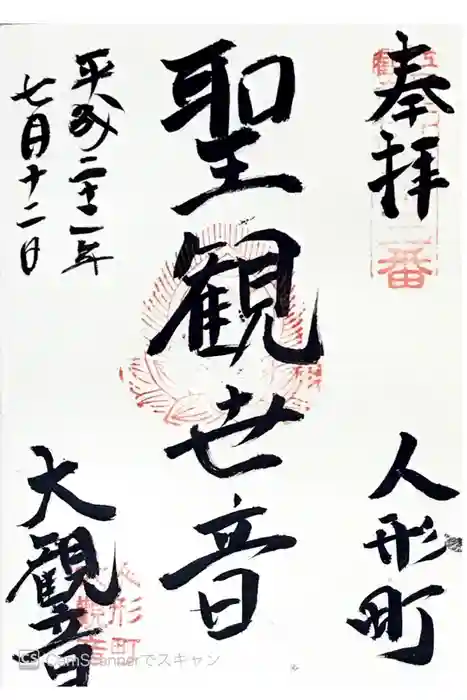 奉拝
人形町
聖観世音
平成二十一年
七月十二日
大観音
番
CS CamScannerでスキャン